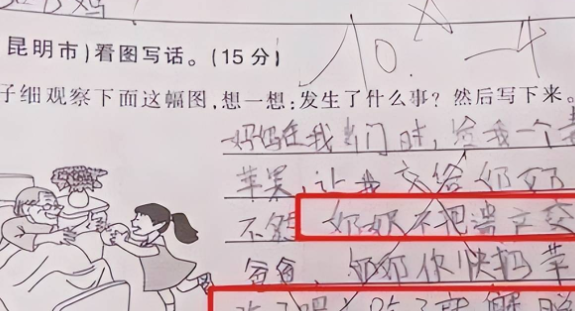 昆明市)看图写话。(15分)
10. -4
子细观察下面这幅图,想一想:发生了什么事?然后写下来。
妈妈在我出门时,给我一个
苹果,让我交给奶奶
不然 奶奶不把遗产交
爸爸, 奶奶你快把苹